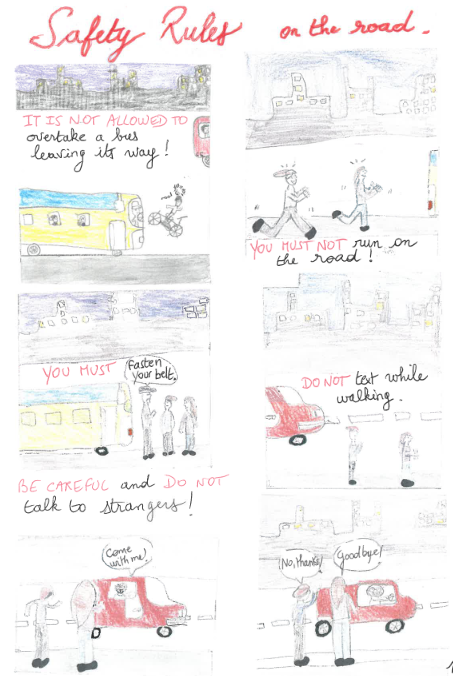 Safety Rules on the road.
IT IS NOT ALLOWED TO
overtake a bus
leaving its way!
YOU MUST NOT run on
the road!
YOU MUST
Fasten
your belt.
DO NOT text while
walking.
BE CAREFUL and DO NOT
talk to strangers!
Come
with me!
No, thanks!
Goodbye!